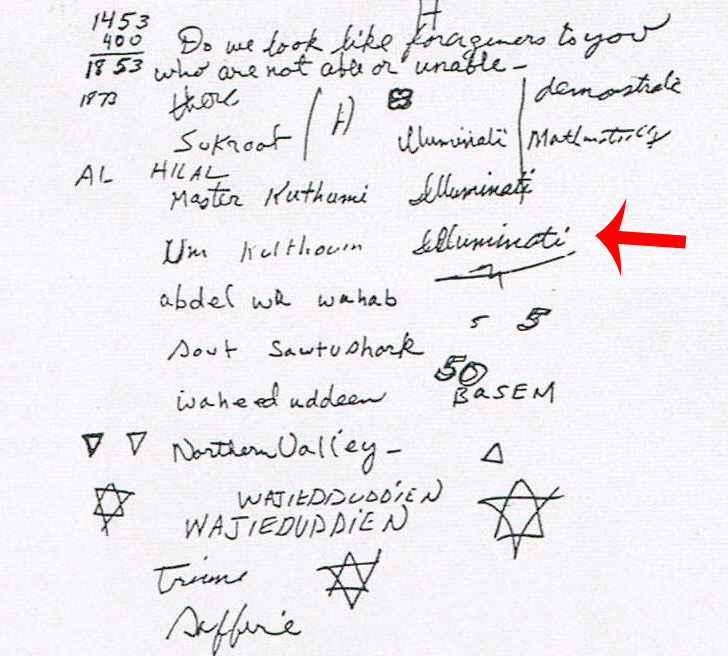 H
1453
400 Do we look like foragieners to you
1853 who are not able or unable -
1873 there
demonstrate
Sukroof H Illuminati Mathmatically
AL HILAL
Master Kuthumi Illuminati
Um Kulthoum Illuminati
abdel wa wahab
5 5
sout Sawtushark
50
waheeduddeen BASEM
Northern Valley -
WAJIEDIDUDDIEN
WAJIEDUDDIEN
Triune